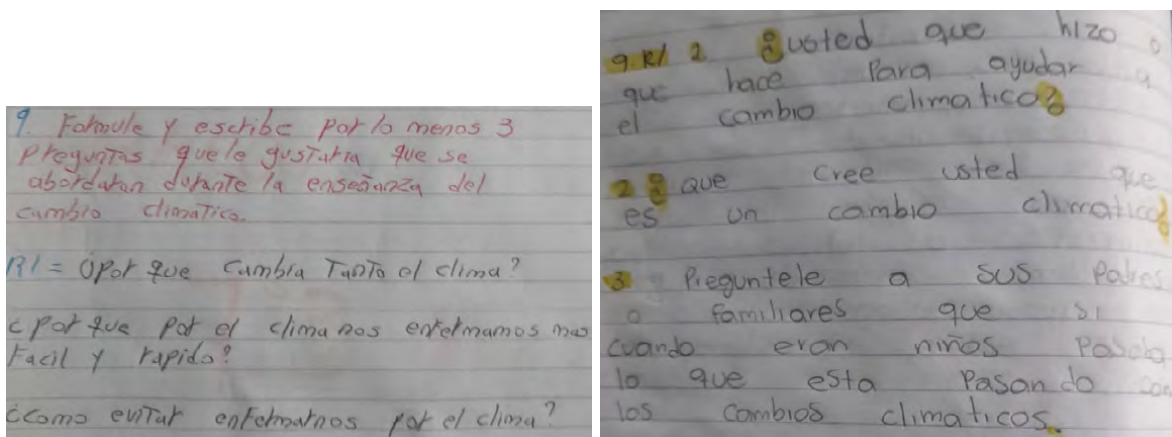 9. Formule y escribe por lo menos 3
preguntas que le gustaria que se
abordaran durante la enseñanza del
cambio climatico.
R/= ¿Por que cambia Tanto el clima?
¿por que por el clima nos enfermamos mas
Facil y rapido?
¿Como evitar enfermarnos por el clima?
9.R/ 1 ¿usted que hizo o
que hace Para ayudar a
el cambio climatico?
2 ¿que cree usted que
es un cambio climatico?
3 Preguntele a sus Padres
o familiares que si
cuando eran niños Pasaba
lo que esta Pasando con
los cambios climaticos.